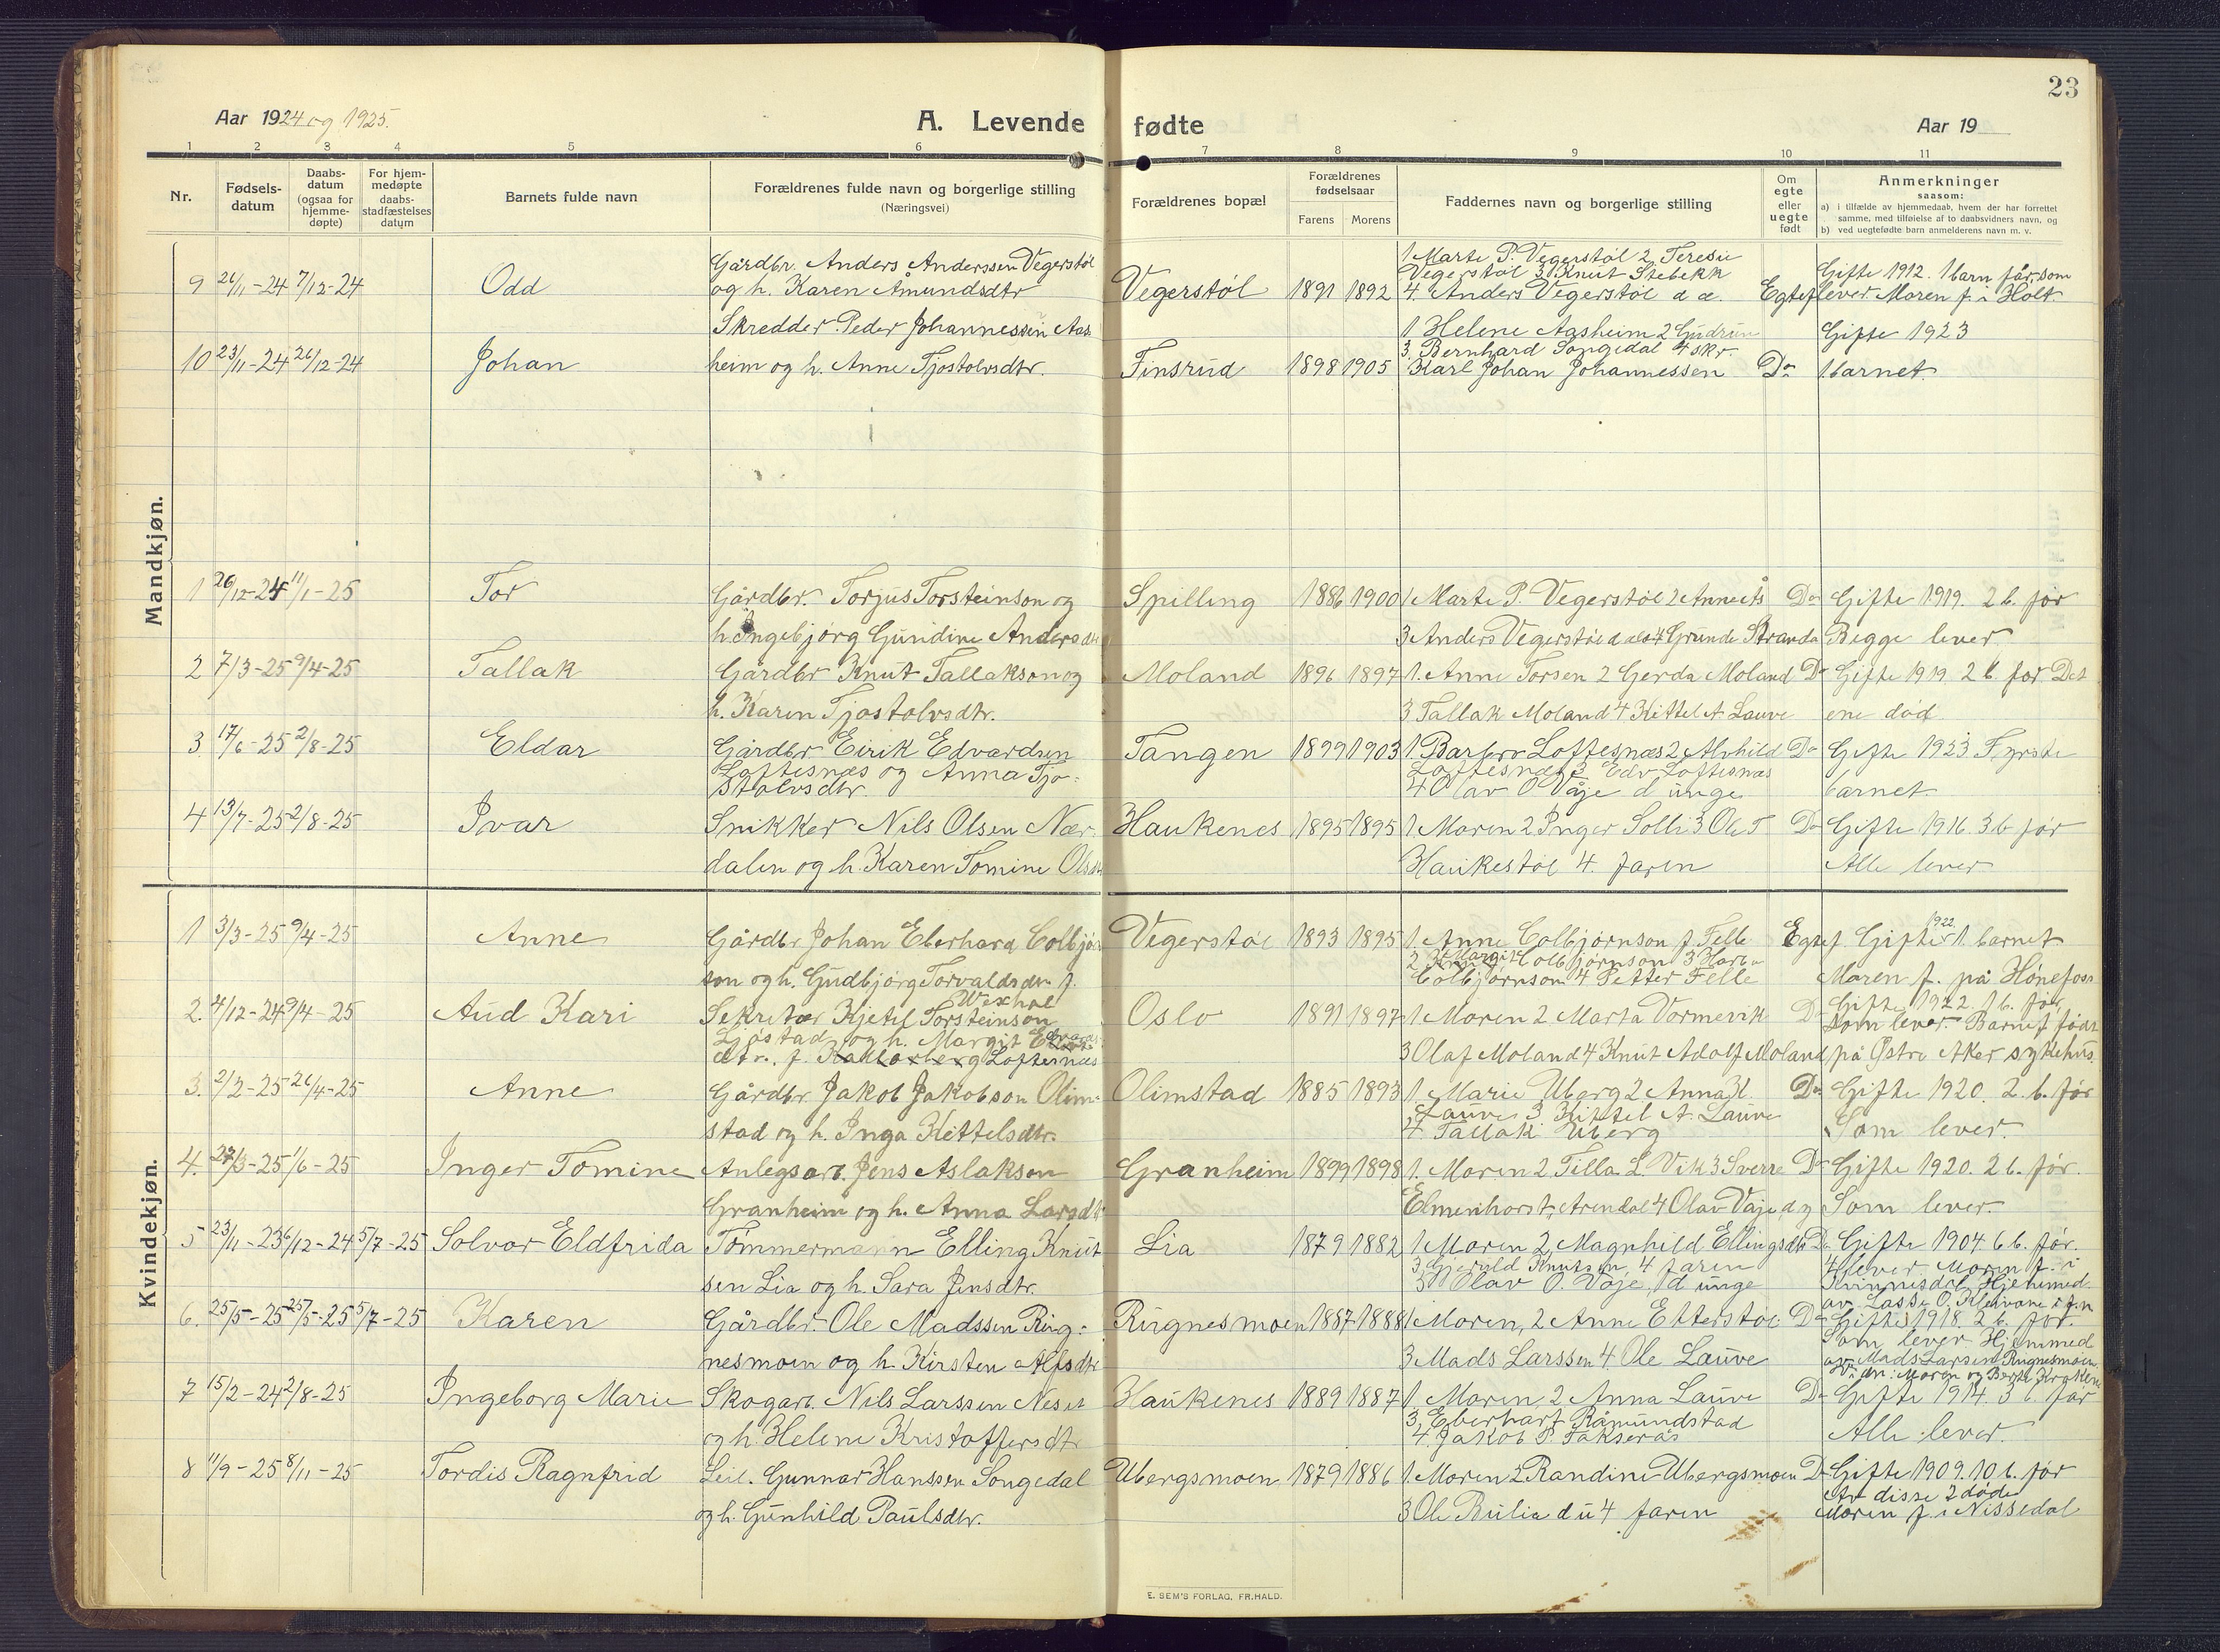 23
Aar 1924 og 1925.
A. Levende fødte
Aar 19
1 2 3 4 5 6 7 8 9 10 11
Nr.
Fødsels-datum
Daabs-datum (ogsaa for hjemme-døpte)
For hjem-medøpte daabs-stadfæstelses datum
Barnets fulde navn
Forældrenes fulde navn og borgerlige stilling
(Næringsvei)
Forældrenes bopæl
Forældrenes fødselsaar
Farens Morens
Faddernes navn og borgerlige stilling
Om egte eller uegte født
Anmerkninger
saasom:
a) i tilfælde av hjemmedaab, hvem der har forrettet samme, med tilføielse af to daabsvidners navn, og
b) ved uegtefødte barn anmelderens navn m. v.
Mandkjøn.
Gårdbr. Anders Anderssen Vegerstøl
1 Marte P. Vegerstøl 2 Teresie
Vegerstøl 3 Knut Stebekk
Gifte 1912. 1 barn før, som
9 26/11-24 7/12-24 Odd og h. Karen Amundsdtr Vegerstøl 1891 1892 4. Anders Vegerstøl d æ. Egtef lever Moren f. i Holt
Skredder Peder Johannessen Aas
1. Helene Aasheim 2 Gudrun
Gifte 1923
3. Bernhard Songedal 4 skr.
10 23/11-24 26/12-24 Johan heim og h. Anne Tjostolvsdtr. Finsrud 1898 1905 Karl Johan Johannessen Do 1. barnet.
1 26/12-24 11/1-25 Tor Gårdbr. Torjus Torsteinson og Spilling 1886 1900 1 Marte P. Vegerstøl 2 Ds Gifte 1919. 2 b. før
h. Ingebjørg Gundine Andersdtr 3 Anders Vegerstøl d 4 Grunde Stranda Begge lever
2 7/3-25 9/4-25 Tallak Gårdbr Knut Tallakson og Moland 1896 1897 1. Anne Torsen 2 Gerda Moland Do Gifte 1919 2 b. før Det
h. Karen Tjostolvsdtr. 3 Tallak Moland 4 Kittel A Lauve ene død
3. 17/6-25 2/8-25 Eldar Gårdbr Eirik Edvardsen Tangen 1899 1903 1. Barbro Loftesnæs 2 Alvhild Do Gifte 1923 Fyrste
Loftesnæs og Anna Tjo- Loftesnæs 3 Edv. Loftesnæs
stolvsdtr. 4 Olav O Våje d unge barnet.
4 13/7-25 2/8-25 Ivar Snikker Nils Olsen Nær- Haukenes 1895 1895 1. Moren 2 Inger Solli 3 Ole T Do Gifte 1916. 3 b før
dalen og h. Karen Tomine Olsdtr Haukestøl 4. faren Alle lever
Kvindekjøn.
1 3/3-25 9/4-25 Anne Gårdbr Johan Eberhard Colbjørn Vegerstøl 1893 1895 1. Anne Colbjørnson f. Felle Egtef Gifte 1922 1. barnet
2 Margit Colbjørnson 3
son og h. Gudbjørg Torvaldsdtr f. Colbjørnson 4 Petter Felle Moren f. på Hønefoss
Wexhal
2. 4/12-24 9/4-25 Aud Kari Sekretær Kjetil Torsteinson Oslo 1891 1897 1 Moren 2 Marta Vormevik Do Gifte 1922. 1 b. før
Ljøstad og h. Margit Edvards- Som lever. Barnet født
dtr. f. Loftesnæs 3 Olaf Moland 4 Knut Adolf Moland på Østre Aker sykehus.
3. 2/2-25 26/4-25 Anne Gårdbr Jakob Jakobson Olim- Olimstad 1885 1893 1. Marie Uberg 2 Anna K. Do Gifte 1920. 2. b. før
Lauve 3 Kittel A. Lauve
stad og h. Inga Kittelsdtr. 4 Tallak Uberg Som lever.
4. 27/3-25 1/6-25 Inger Tomine Anlegsarb. Jens Aslakson Granheim 1899 1898 1. Moren 2 Tilla L. Vik 3 Sverre Do Gifte 1920. 2 b. før.
Granheim og h. Anna Larsdtr Elmenhorst, Arendal 4 Olav Vaje d y Som lever.
5 23/11-23 6/12-24 5/7-25 Solvor Eldfrida Tømmermann Elling Knut Lia 1879 1882 1 Moren 2 Magnhild Ellingsdtr Do Gifte 1904. 6 b. før.
3 Knutsen, 4 faren 4 lever. Moren f. i
sen Lia og h. Sara Jensdtr. 5 Olav O. Vaje, d unge Kvinnesdal Hjemmed.
av Lasse O. Kleivane
6. 25/5-25 25/5-25 5/7-25 Karen Gårdbr. Ole Madssen Ring- Ringnesmoen 1887 1888 1 Moren, 2 Anne Etterstøl Do Gifte 1918. 2 b. før.
Som lever Hjemmed
nesmoen og h. Kirsten Alfsdtr 3 Mads Larssen 4 Ole Lauve av Mads Larsen Ringnesmoen
Moren og
7 15/2-24 2/8-25 Ingeborg Marie Skogarb. Nils Larssen Neset Haukenes 1889 1887 1. Moren, 2 Anna Lauve Do Gifte 1914. 3 b. før
3. Eberhart Råmundstad
og h. Helene Kristoffersdtr 4 Jakob P. Takserås Alle lever.
8 11/9-25 8/11-25 Tordis Ragnfrid Leil. Gunnar Hanssen Songedal Ubergsmoen 1879 1886 1. Moren 2 Randine Ubergsmoen Do Gifte 1909. 10 b. før
Av disse 2 døde
og h. Gunhild Paulsdtr. 3 Ole Rulia d u 4 faren Moren f. i Nissedal
E. SEM'S FORLAG, FR.HALD.